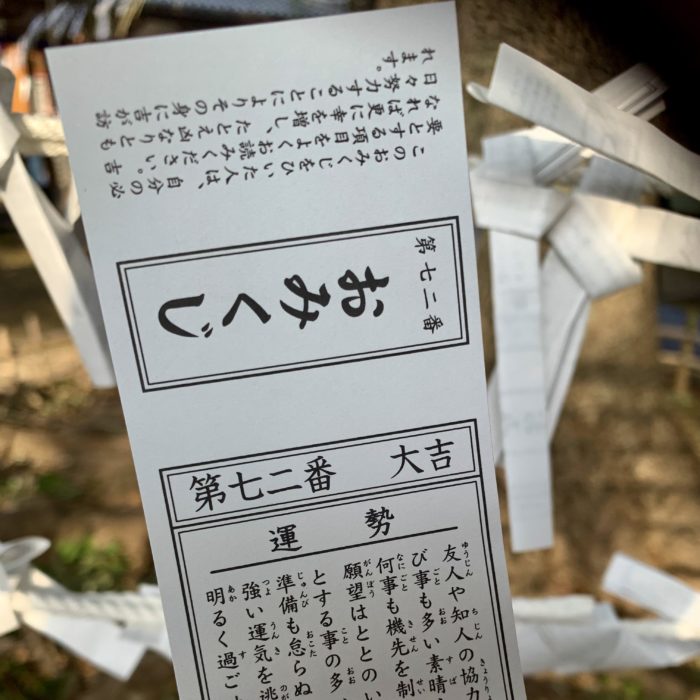 このおみくじをひいた人は、自分の必
要とする項目をよくお読みください。吉
なれば更に幸を増し、たとえ凶なりとも
日々努力することによりその身に吉が訪
れます。
第七二番
おみくじ
第七二番 大吉
運勢
友人や知人の協力
び事も多い素晴
何事も機先を制
願望はととのい
とする事の多
準備も怠らぬ
強い運気を逃
明るく過ご